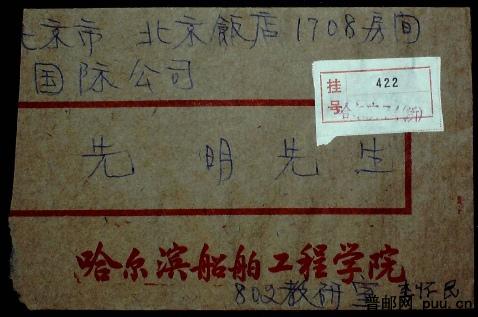 北京市 北京飯店1708房间
国际公司
挂号
422
先 明 先 生
哈尔滨船舶工程学院
802教研室 李怀民
普邮网 puu.cn